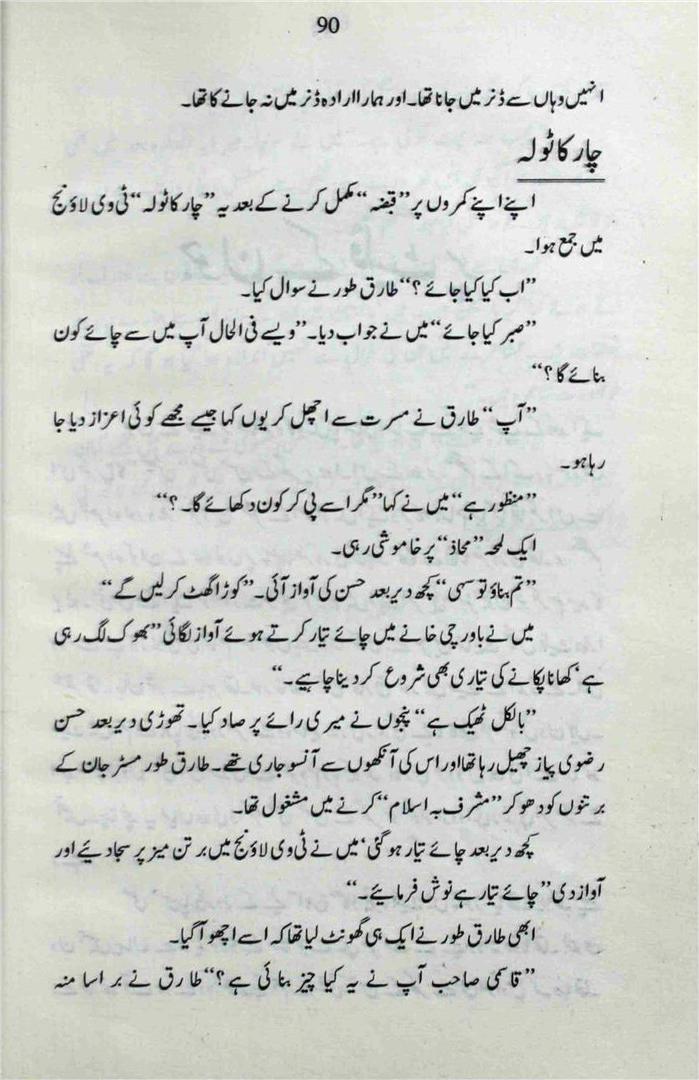 90
انہیں وہاں سے ڈنر میں جانا تھا۔ اور ہمارا ارادہ ڈنر میں نہ جانے کا تھا۔
چار کا ٹولہ
اپنے اپنے کمروں پر ”قبضہ“ مکمل کرنے کے بعد یہ ”چار کا ٹولہ“ ٹی وی لاؤنج
میں جمع ہوا۔
”اب کیا کیا جائے؟“ طارق طور نے سوال کیا۔
”صبر کیا جائے“ میں نے جواب دیا۔ ”ویسے فی الحال آپ میں سے چائے کون
بنائے گا؟“
”آپ“ طارق نے مسرت سے اچھل کر یوں کہا جیسے مجھے کوئی اعزاز دیا جا
رہا ہو۔
”منظور ہے“ میں نے کہا ”مگر اسے پی کر کون دکھائے گا۔؟“
ایک لمحہ ”محاذ“ پر خاموشی رہی۔
”تم بناؤ تو سہی“ کچھ دیر بعد حسن کی آواز آئی۔ ”کوڑا گھٹ کر لیں گے“
میں نے باورچی خانے میں چائے تیار کرتے ہوئے آواز لگائی ”بھوک لگ رہی
ہے‘ کھانا پکانے کی تیاری بھی شروع کر دینا چاہیے۔“
”بالکل ٹھیک ہے“ پنچوں نے میری رائے پر صاد کیا۔ تھوڑی دیر بعد حسن
رضوی پیاز چھیل رہا تھا اور اس کی آنکھوں سے آنسو جاری تھے۔ طارق طور مسٹر جان کے
برتنوں کو دھو کر ”مشرف بہ اسلام“ کرنے میں مشغول تھا۔
کچھ دیر بعد چائے تیار ہو گئی‘ میں نے ٹی وی لاؤنج میں برتن میز پر سجا دیئے اور
آواز دی ”چائے تیار ہے نوش فرمائیے۔“
ابھی طارق طور نے ایک ہی گھونٹ لیا تھا کہ اسے اچھو آ گیا۔
”قاسمی صاحب آپ نے یہ کیا چیز بنائی ہے؟“ طارق نے برا سا منہ